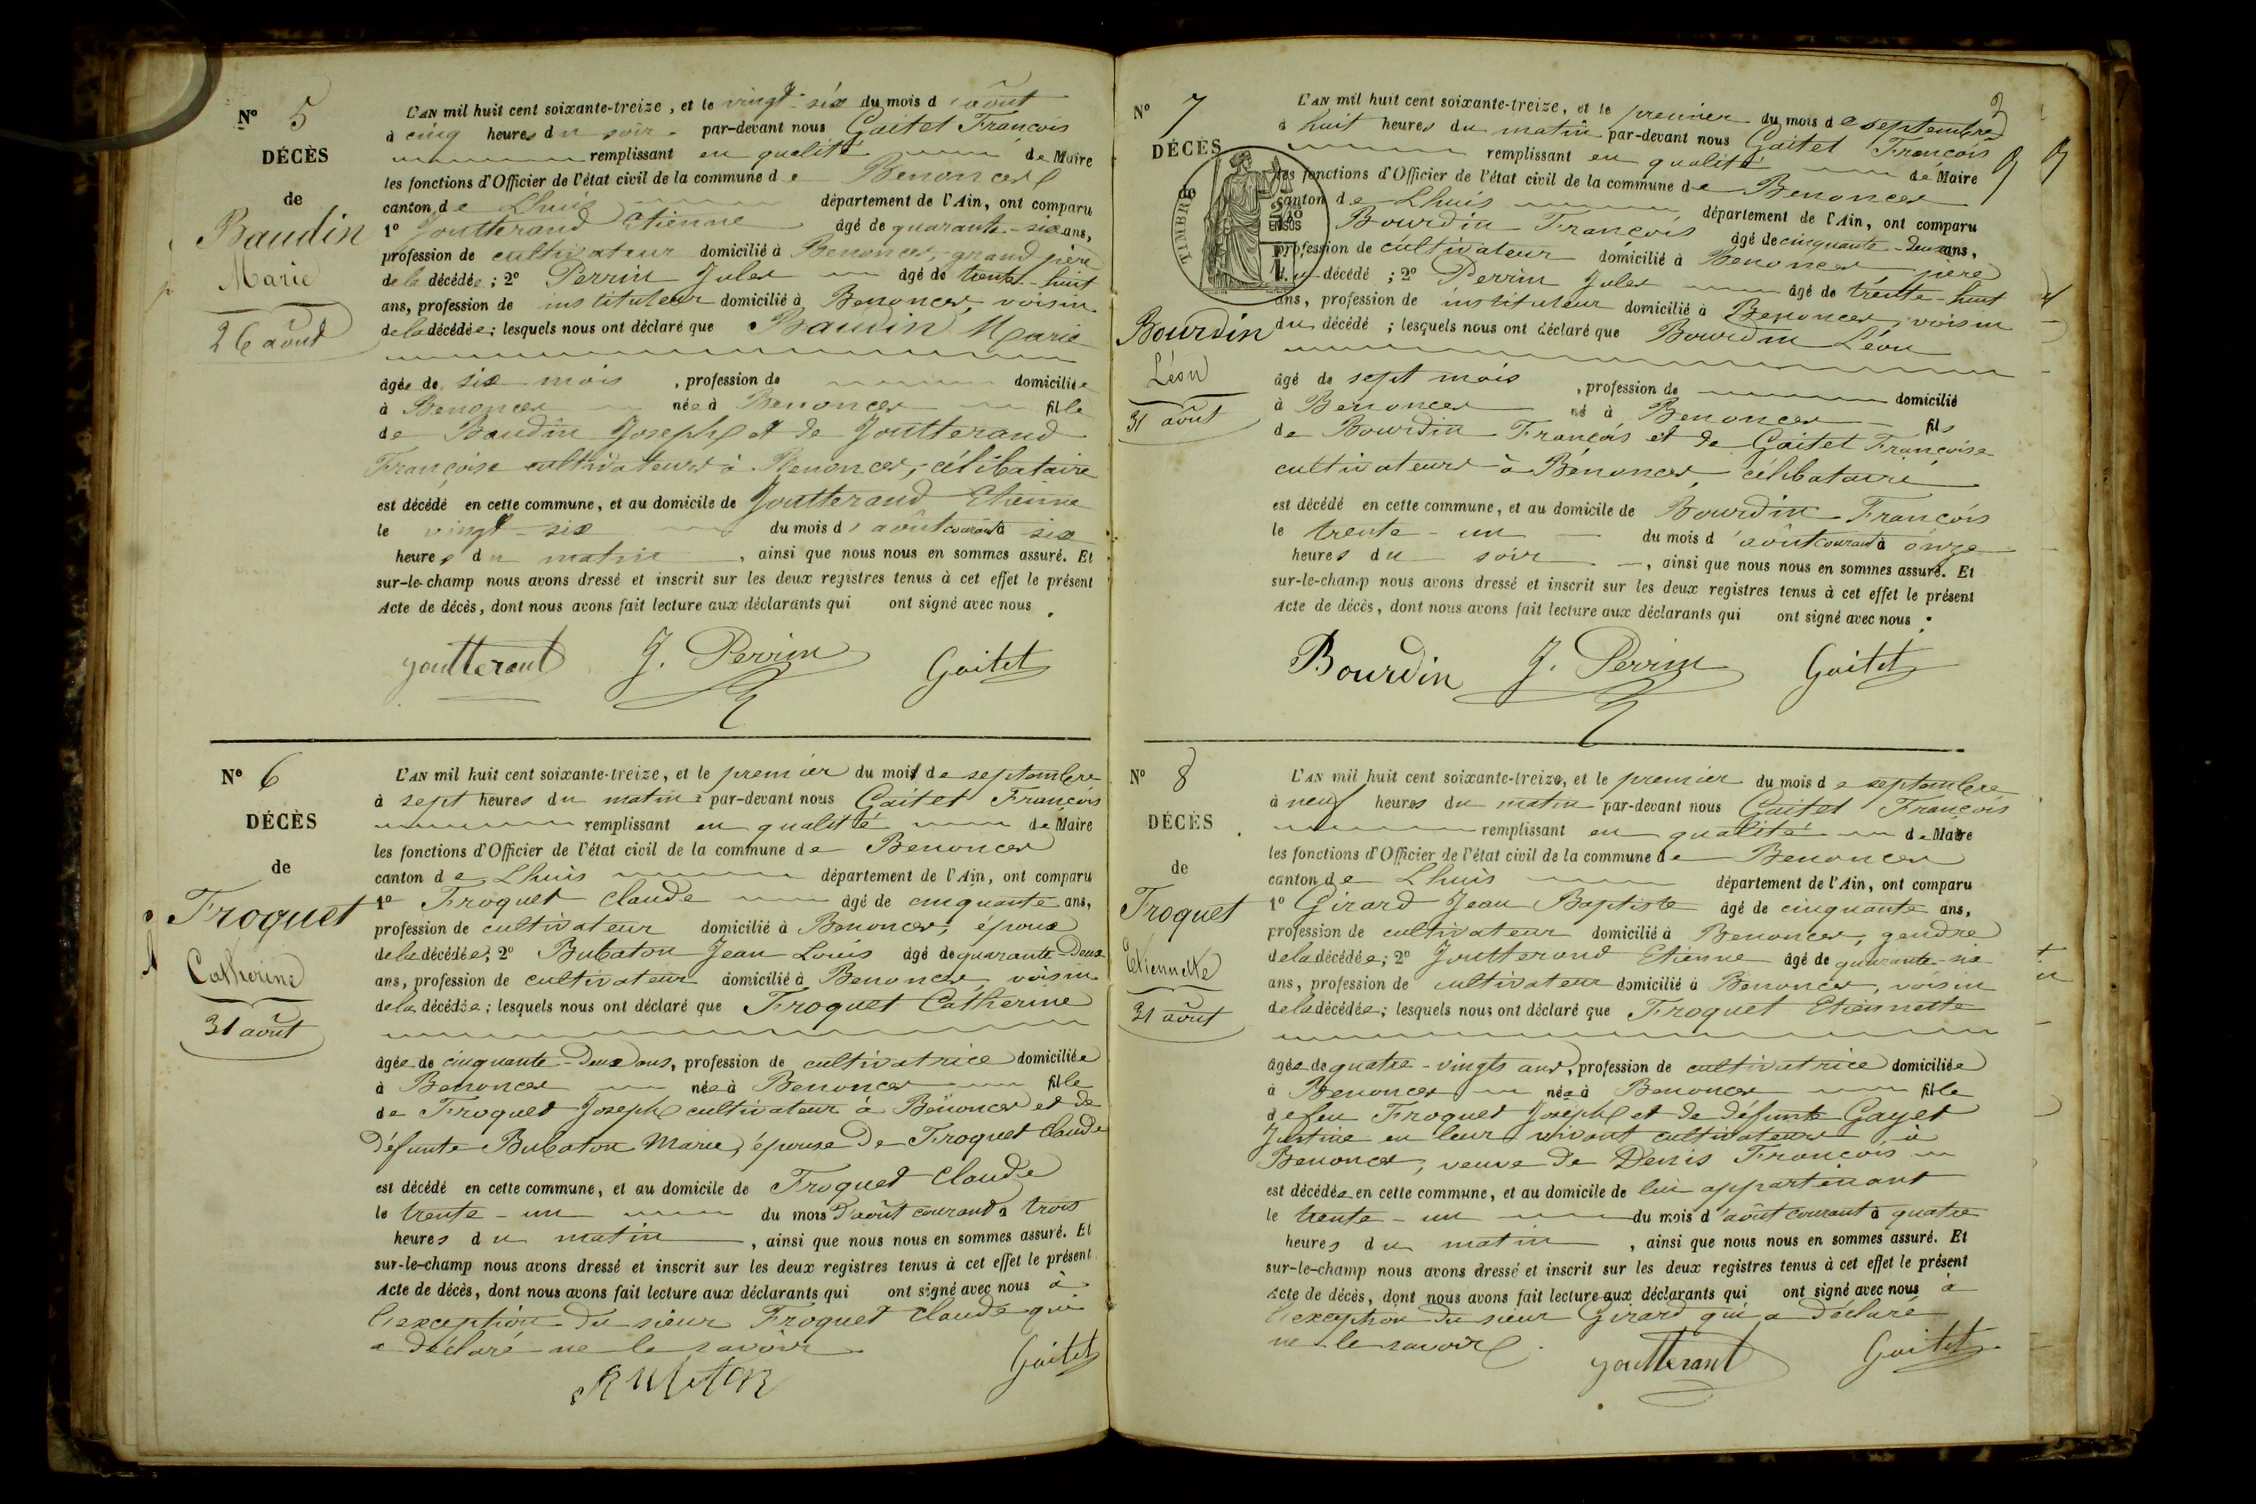 N° 5
DÉCÈS
de
Baudin
Marie
26 août
L'AN mil huit cent soixante-treize, et le vingt-six du mois d'août
à cinq heures du soir par-devant nous Gaitet François
remplissant en qualité de Maire
les fonctions d'Officier de l'état civil de la commune de Benonces
canton de Lhuis département de l'Ain, ont comparu
1° Joutterand Etienne âgé de quarante-six ans,
profession de cultivateur domicilié à Benonces, grand père
de la décédée; 2° Perrin Jules âgé de trente-huit
ans, profession de instituteur domicilié à Benonces, voisin
de la décédée; lesquels nous ont déclaré que Baudin Marie
âgée de six mois, profession de domiciliée
à Benonces née à Benonces fille
de Baudin Joseph et de Joutterand
Françoise cultivateurs à Benonces, célibataire
est décédé en cette commune, et au domicile de Joutterand Etienne
le vingt-six du mois d'août courant à six
heures du matin, ainsi que nous nous en sommes assuré. Et
sur-le-champ nous avons dressé et inscrit sur les deux registres tenus à cet effet le présent
Acte de décès, dont nous avons fait lecture aux déclarants qui ont signé avec nous.
Joutterant J. Perrin Gaitet
N° 6
DÉCÈS
de
Froquet
Catherine
31 août
L'AN mil huit cent soixante-treize, et le premier du mois de septembre
à sept heures du matin par-devant nous Gaitet François
remplissant en qualité de Maire
les fonctions d'Officier de l'état civil de la commune de Benonces
canton de Lhuis département de l'Ain, ont comparu
1° Froquet Claude âgé de cinquante ans,
profession de cultivateur domicilié à Benonces, époux
de la décédée; 2° Bubaton Jean Louis âgé de quarante-deux
ans, profession de cultivateur domicilié à Benonces, voisin
de la décédée; lesquels nous ont déclaré que Froquet Catherine
âgée de cinquante-deux ans, profession de cultivatrice domiciliée
à Benonces née à Benonces fille
de Froquet Joseph cultivateur à Benonces et de
défunte Bubaton Marie, épouse de Froquet Claude
est décédé en cette commune, et au domicile de Froquet Claude
le trente-un du mois d'août courant à trois
heures du matin, ainsi que nous nous en sommes assuré. Et
sur-le-champ nous avons dressé et inscrit sur les deux registres tenus à cet effet le présent
Acte de décès, dont nous avons fait lecture aux déclarants qui ont signé avec nous à
l'exception du sieur Froquet Claude qui
a déclaré ne le savoir.
Gaitet
N° 7
DÉCÈS
de
Bourdin
Léon
31 août
TIMBRE
2/10 EN SUS
L'AN mil huit cent soixante-treize, et le premier du mois de septembre
à huit heures du matin par-devant nous Gaitet François
remplissant en qualité de Maire
les fonctions d'Officier de l'état civil de la commune de Benonces
canton de Lhuis département de l'Ain, ont comparu
Bourdin François âgé de cinquante-deux ans,
profession de cultivateur domicilié à Benonces, père
du décédé; 2° Perrin Jules âgé de trente-huit
ans, profession de instituteur domicilié à Benonces, voisin
du décédé; lesquels nous ont déclaré que Bourdin Léon
âgé de sept mois, profession de domicilié
à Benonces né à Benonces fils
de Bourdin François et de Gaitet Françoise
cultivateurs à Bénonces, célibataire
est décédé en cette commune, et au domicile de Bourdin François
le trente-un du mois d'août courant à onze
heures du soir, ainsi que nous nous en sommes assuré. Et
sur-le-champ nous avons dressé et inscrit sur les deux registres tenus à cet effet le présent
Acte de décès, dont nous avons fait lecture aux déclarants qui ont signé avec nous.
Bourdin J. Perrin Gaitet
N° 8
DÉCÈS
de
Froquet
Etiennette
31 août
L'AN mil huit cent soixante-treize, et le premier du mois de septembre
à neuf heures du matin par-devant nous Gaitet François
remplissant en qualité de Maire
les fonctions d'Officier de l'état civil de la commune de Benonces
canton de Lhuis département de l'Ain, ont comparu
1° Girard Jean Baptiste âgé de cinquante ans,
profession de cultivateur domicilié à Benonces, gendre
de la décédée; 2° Joutterand Etienne âgé de quarante-six
ans, profession de cultivateur domicilié à Benonces, voisin
de la décédée; lesquels nous ont déclaré que Froquet Etiennette
âgée de quatre-vingts ans, profession de cultivatrice domiciliée
à Benonces née à Benonces fille
de feu Froquet Joseph et de défunte Gayet
Justine en leur vivant cultivateurs à
Benonces, veuve de Denis François
est décédée en cette commune, et au domicile de lui appartenant
le trente-un du mois d'août courant à quatre
heures du matin, ainsi que nous nous en sommes assuré. Et
sur-le-champ nous avons dressé et inscrit sur les deux registres tenus à cet effet le présent
Acte de décès, dont nous avons fait lecture aux déclarants qui ont signé avec nous à
l'exception du sieur Girard qui a déclaré
ne le savoir.
Joutterant Gaitet